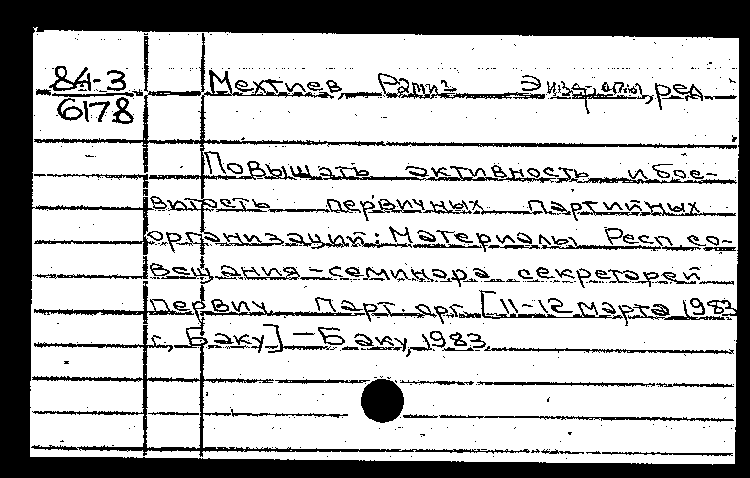 84-3
6178
Мехтиев, Рамиз ред.
Повышать активность и бое-
витость первичных партийных
организаций: Материалы Респ. со-
вещания-семинара секретарей
первич. парт. орг. [11-12 марта 1983
г., Баку] - Баку, 1983.